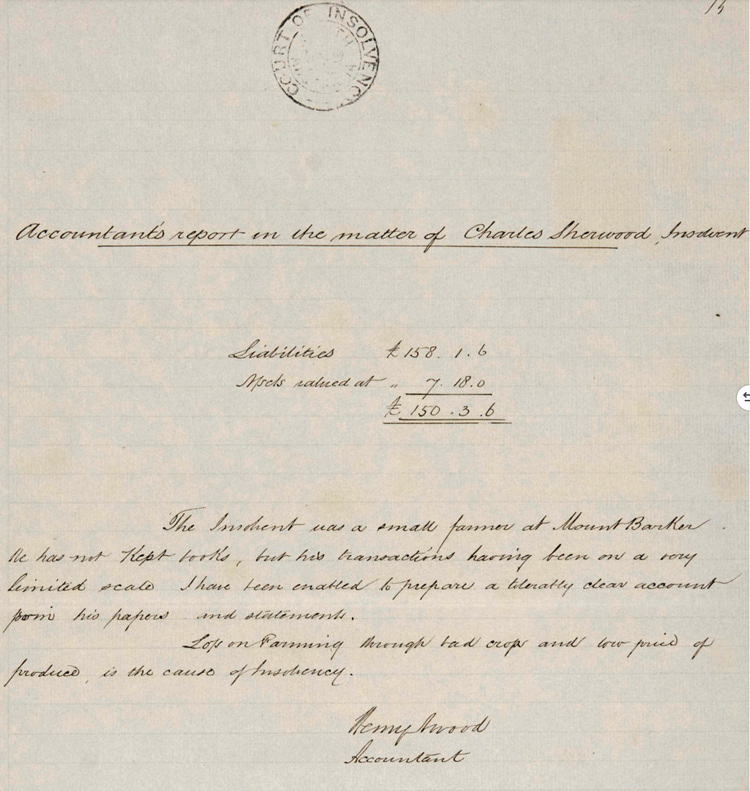 15
COURT OF INSOLVENC
Accountant's report in the matter of Charles Sherwood, Insolvent
Liabilities £158. 1. 6
Assets valued at „ 7. 18. 0
£150. 3. 6
The Insolvent was a small farmer at Mount Barker.
He has not Kept books, but his transactions having been on a very
limited scale I have been enabled to prepare a tolerably clear account
from his papers and statements.
Loss on Farming through bad crops and low price of
produce, is the cause of Insolvency.
Henry Wood
Accountant